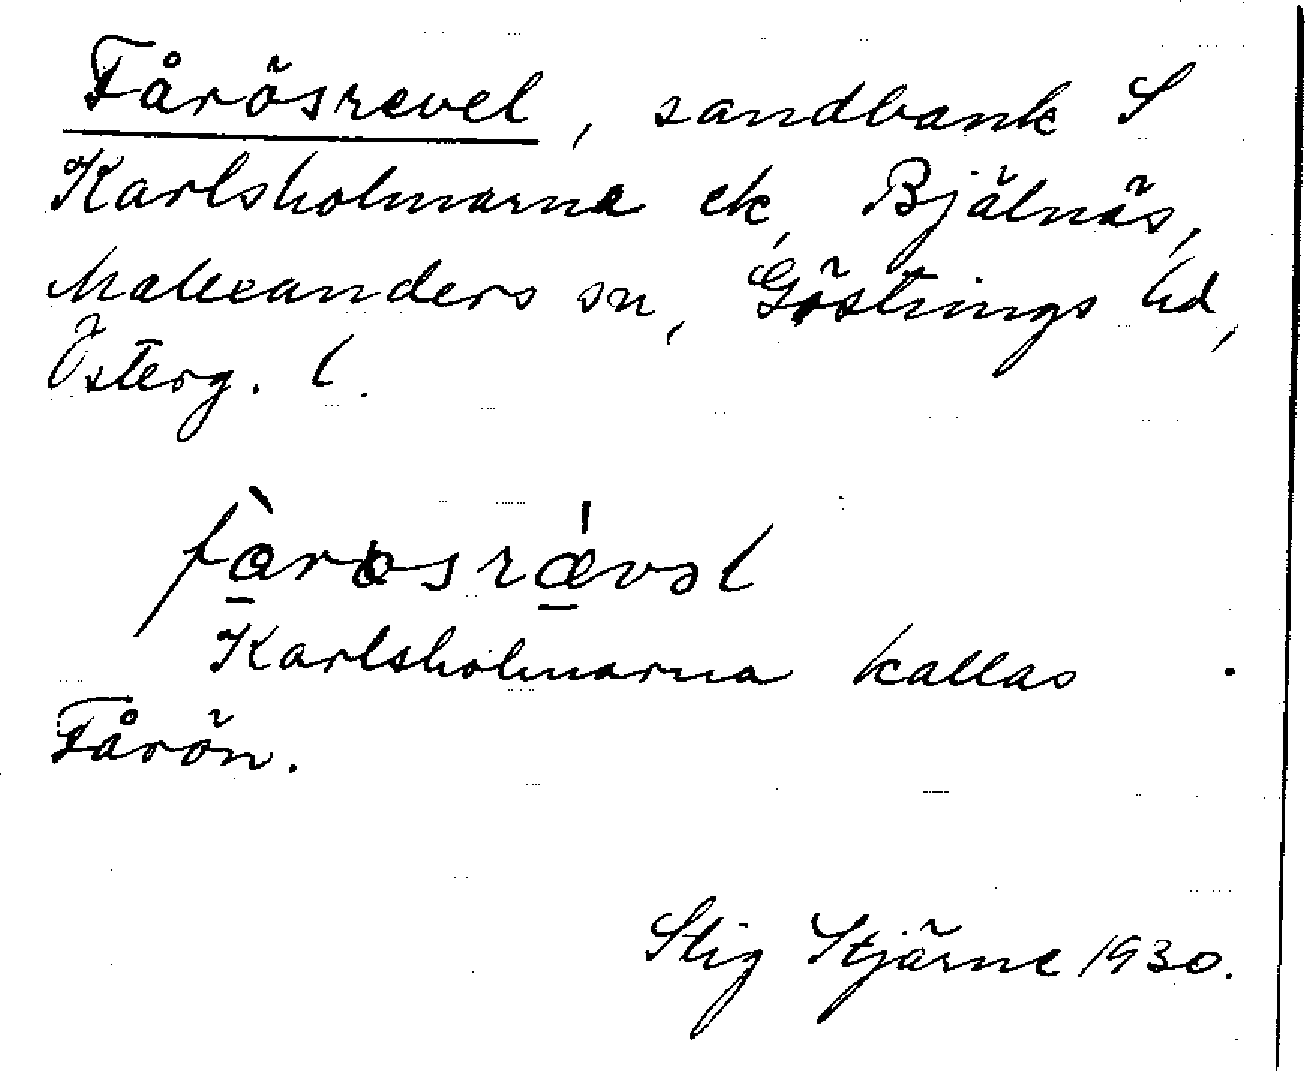 Fårösrevel, sandbank S
Karlsholmarna ek, Bjälnäs,
Malexanders sn, Göstrings hd,
Österg. l.
Karlsholmarna kallas
Fårön.
Stig Stjärne 1930.